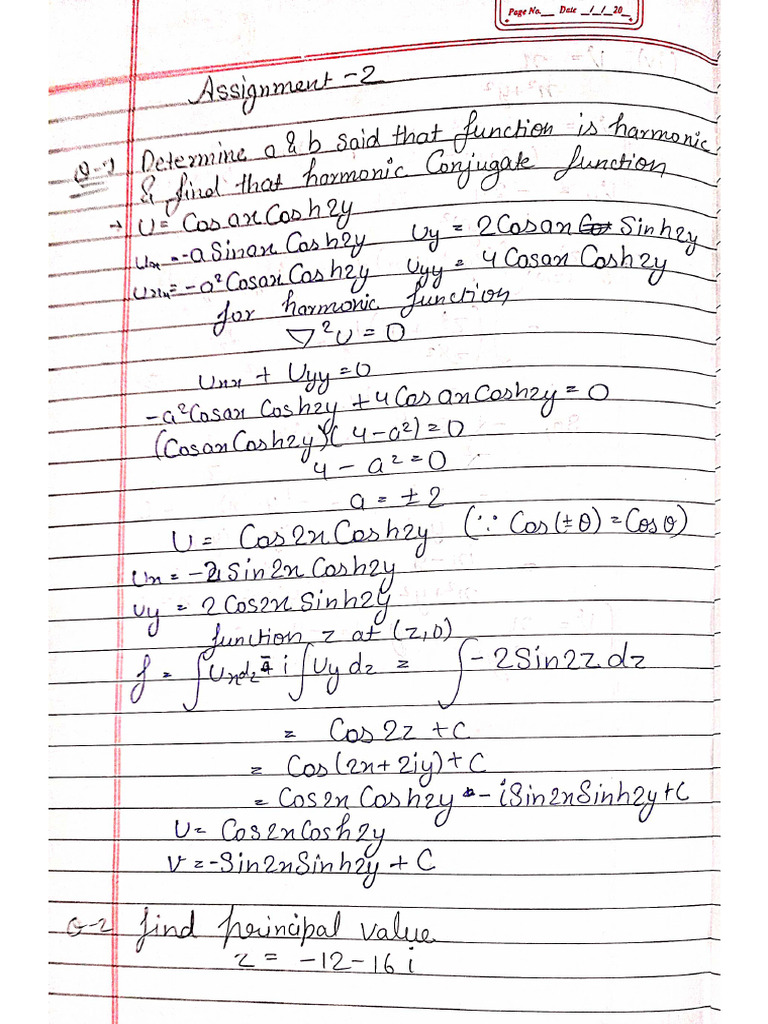 Page No.__ Date _/_/_20_
Assignment -2
Q-1 Determine a & b said that function is harmonic
& find that harmonic Conjugate function
→ U = Cosax Cosh2y
Ux = -a Sinax Cosh2y Uy = 2Cosax Sinh2y
Uxx = -a² Cosax Cosh2y Uyy = 4 Cosax Cosh2y
for harmonic function
▽²U = 0
Uxx + Uyy = 0
-a² Cosax Cosh2y + 4 Cosax Cosh2y = 0
(Cosax Cosh2y)(4-a²) = 0
4 - a² = 0
a = ± 2
U = Cos2x Cosh2y (∵ Cos(±θ) = Cosθ)
Ux = -2 Sin2x Cosh2y
Uy = 2 Cos2x Sinh2y
function z at (z,0)
f = ∫Uxdz - i∫Uy dz = ∫-2Sin2z dz
= Cos2z + C
= Cos(2x+2iy) + C
= Cos2x Cosh2y - iSin2xSinh2y + C
U = Cos2xCosh2y
V = -Sin2xSinh2y + C
Q-2 find principal value
z = -12-16i